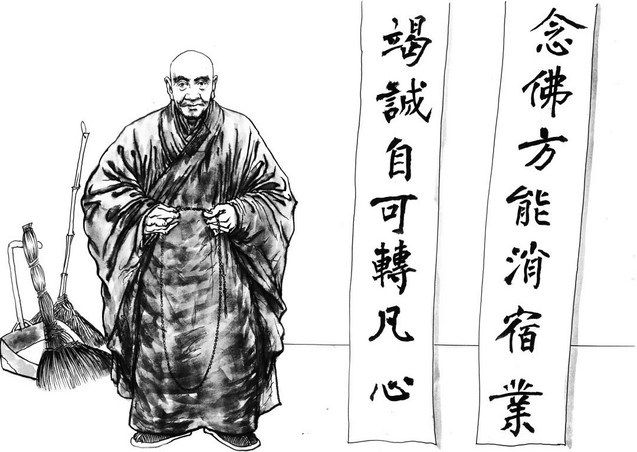 念佛方能消宿業
竭誠自可轉凡心